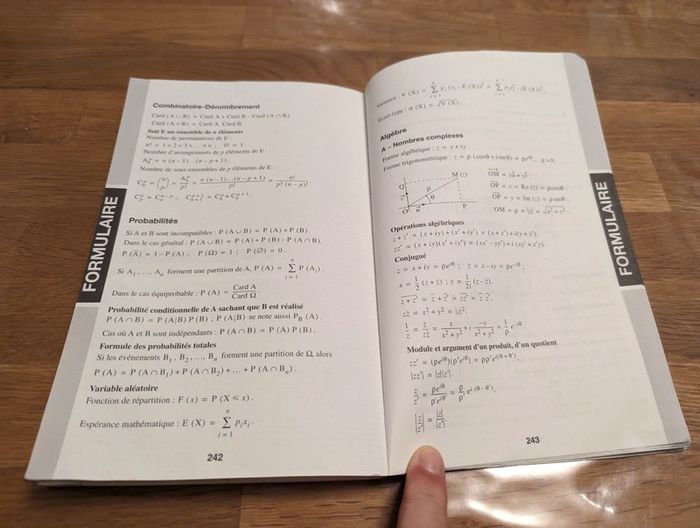 FORMULAIRE
Combinatoire-Dénombrement
Card (A ∪ B) = Card A + Card B - Card (A ∩ B).
Card (A × B) = Card A . Card B.
Soit E un ensemble de n éléments
Nombre de permutations de E :
n! = 1 × 2 × 3 × ... × n ; 0! = 1.
Nombre d'arrangements de p éléments de E :
Aₙᵖ = n (n – 1)...(n – p + 1).
Nombre de sous-ensembles de p éléments de E :
Cₙᵖ = (n p) = Aₙᵖ / p! = n (n – 1)...(n – p + 1) / p! = n! / p! (n – p)!
Probabilités
Si A et B sont incompatibles : P (A ∪ B) = P (A) + P (B)
Dans le cas général : P (A ∪ B) = P (A) + P (B) – P (A ∩ B).
P (A̅) = 1 – P (A) ; P (Ω) = 1 ; P (∅) = 0.
Si A₁, ..., Aₙ forment une partition de A, P (A) = Σ P (Aᵢ).
Dans le cas équiprobable : P (A) = Card A / Card Ω
Probabilité conditionnelle de A sachant que B est réalisé
P (A ∩ B) = P (A|B) P (B) ; P (A|B) se note aussi P_B (A).
Cas où A et B sont indépendants : P (A ∩ B) = P (A) P (B).
Formule des probabilités totales
Si les événements B₁, B₂, ..., Bₙ forment une partition de Ω, alors
P (A) = P (A ∩ B₁) + P (A ∩ B₂) + ... + P (A ∩ Bₙ).
Variable aléatoire
Fonction de répartition : F (x) = P (X ⩽ x).
Espérance mathématique : E (X) = Σ pᵢxᵢ. n i = 1
242
Variance : V (X) = Σ pᵢ (xᵢ – E (X))² = Σ pᵢxᵢ² – (E (X))².
Écart-type : σ (X) = √V (X).
Algèbre
A – Nombres complexes
Forme algébrique : z = x + iy
Forme trigonométrique : z = ρ (cosθ + i sinθ) = ρe^iθ, ρ > 0.
M (z)
Q
ρ
θ
O
P
OP = x = Re (z) = ρcosθ ;
OQ = y = Im (z) = ρsinθ ;
OM = ρ = |z| = √x² + y².
Opérations algébriques
z + z' = (x + iy) + (x' + iy') = (x + x') + i(y + y').
zz' = (x + iy)(x' + iy') = (xx' – yy') + i(xy' + x'y).
Conjugué
z = x + iy = ρe^iθ ; z̅ = x – iy = ρe^–iθ.
x = 1/2 (z + z̅) ; y = 1/2i (z – z̅).
zz̅ = x² + y² = |z|².
1/z = z̅/zz̅ = x/(x² + y²) + i –y/(x² + y²) = 1/ρ e^–iθ
Module et argument d'un produit, d'un quotient
zz' = (ρe^iθ)(ρ'e^iθ') = ρρ'e^i(θ + θ').
|zz'| = |z||z'|.
z/z' = ρe^iθ/ρ'e^iθ' = ρ/ρ' e^i(θ – θ').
|z/z'| = |z|/|z'|.
243
FORMULAIRE